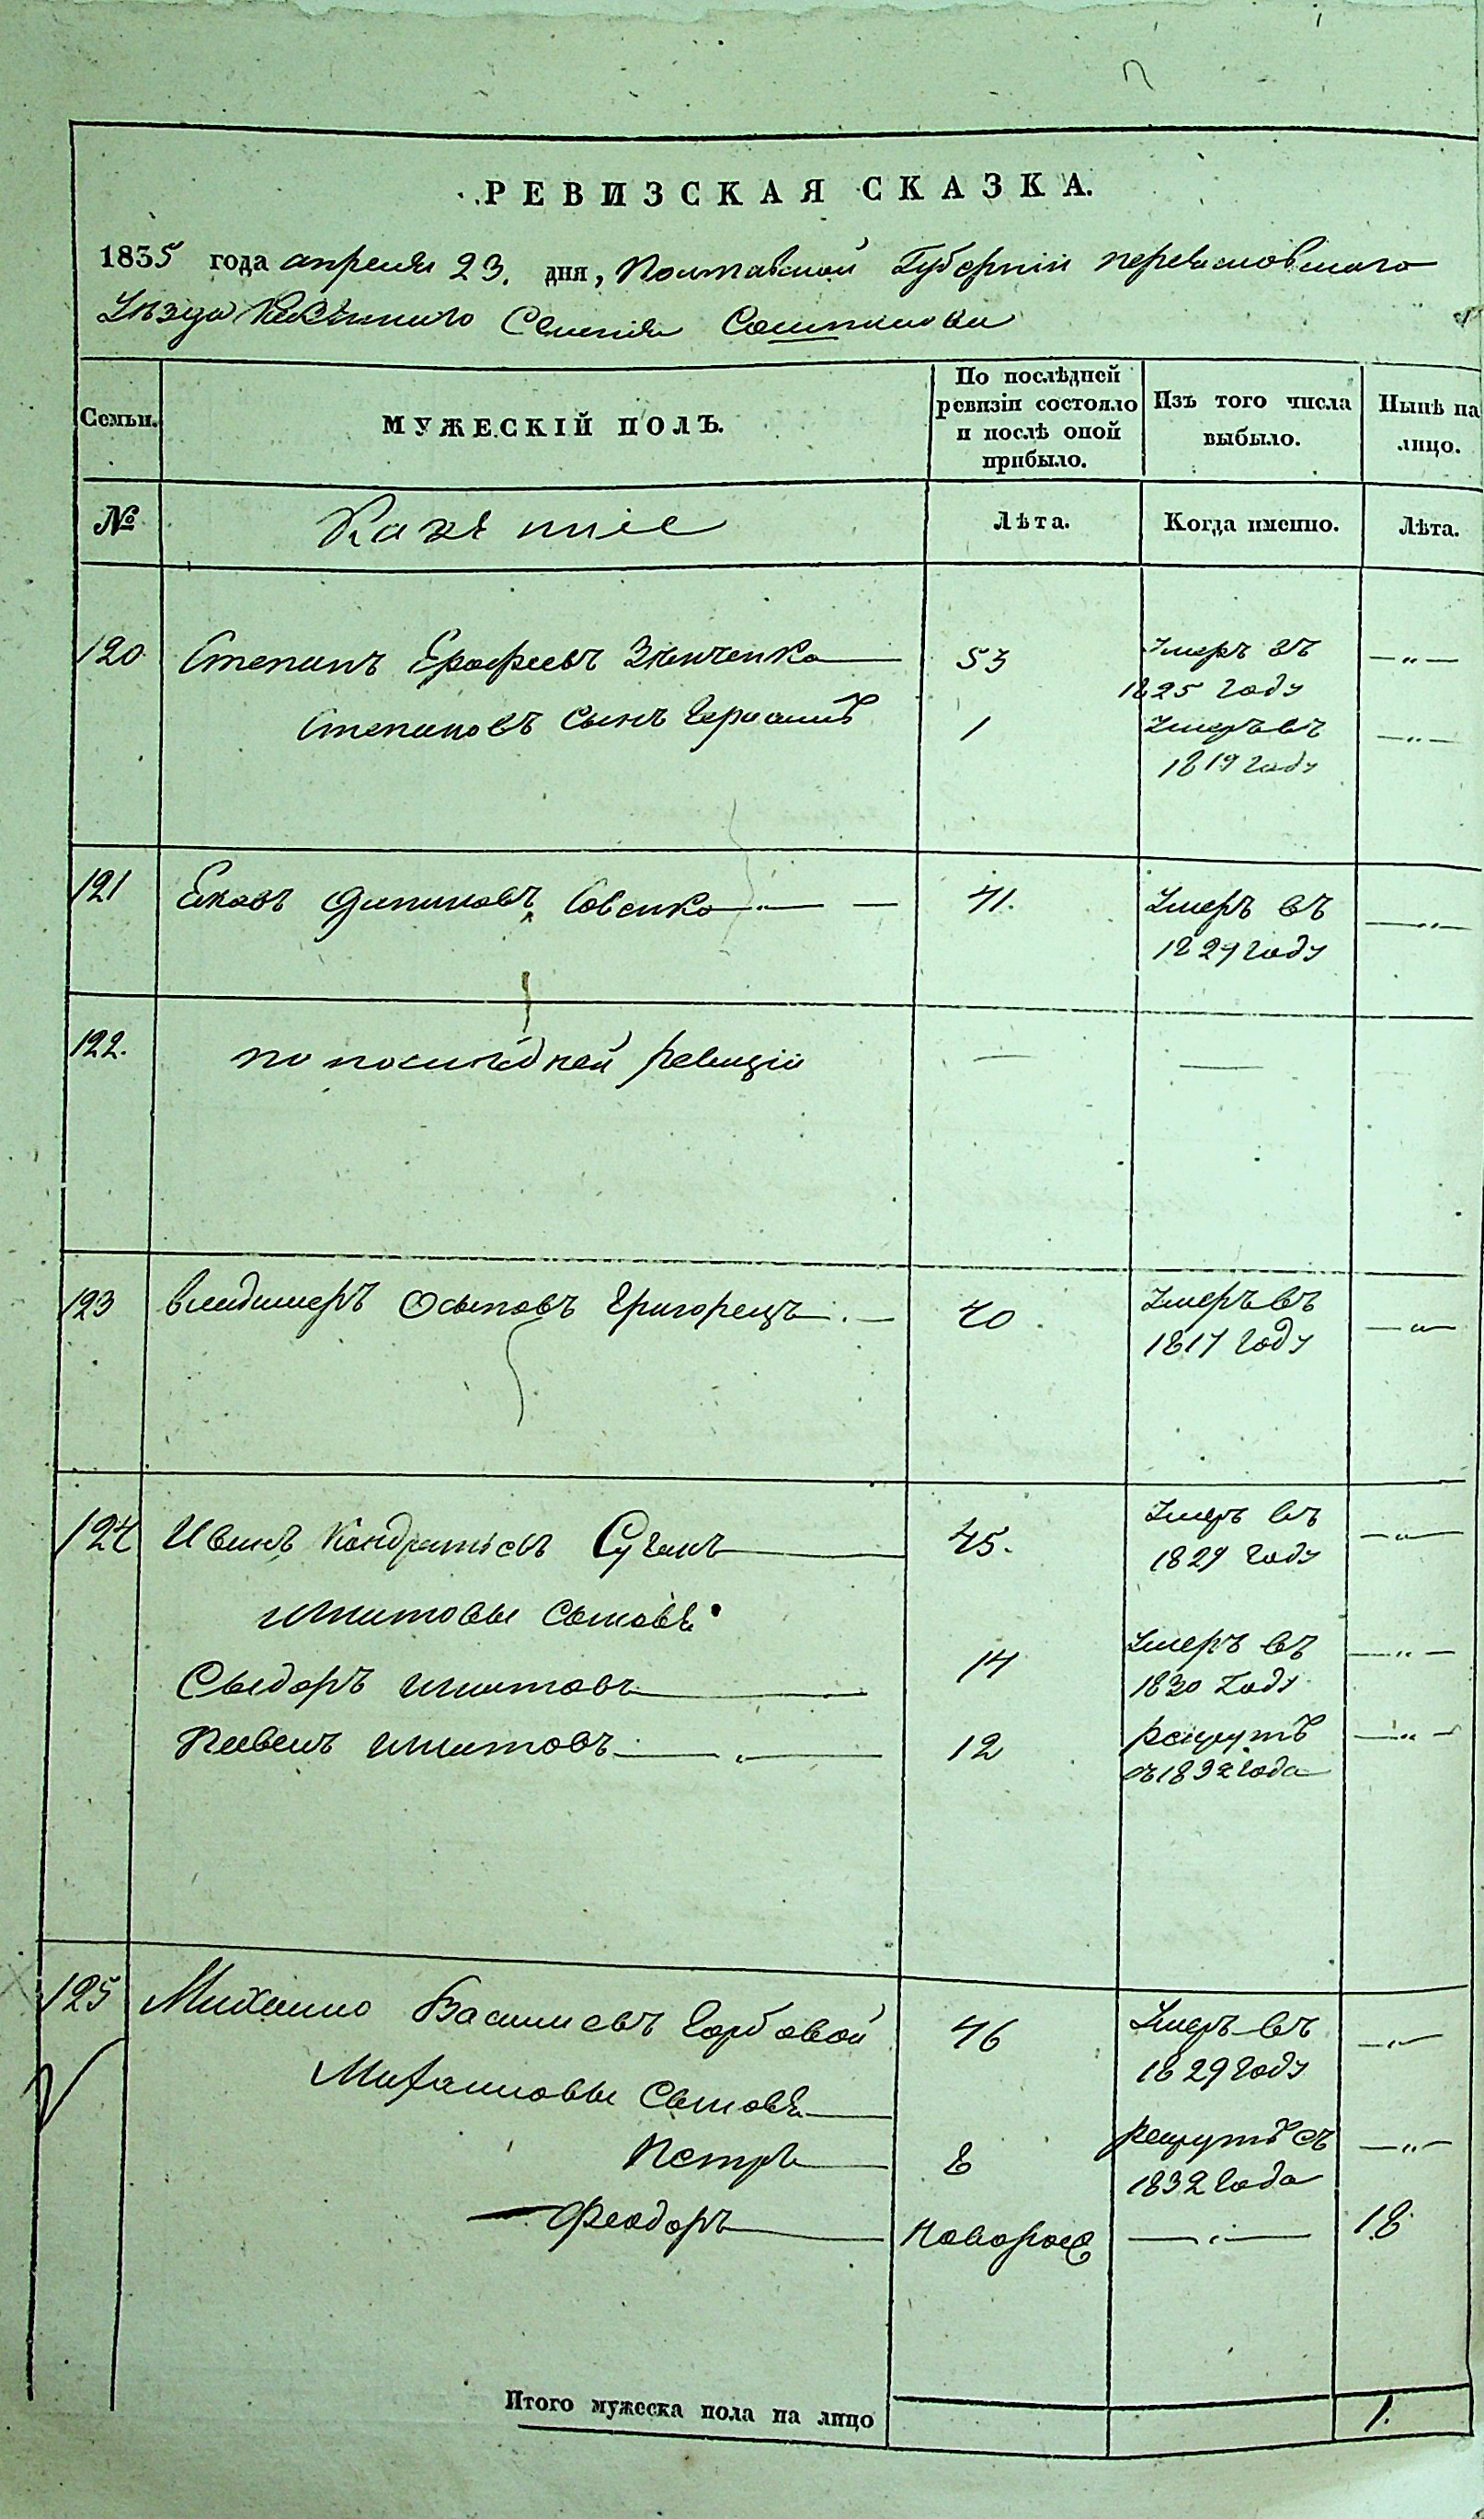 РЕВИЗСКАЯ СКАЗКА.
1835 года апреля 23. дня, Полтавской Губернiи переяславскаго
Уѣзда Казѣннаго Селенiя Сошникова
Семьи.
МУЖЕСКІЙ ПОЛЪ.
По послѣдней ревизіи состояло и послѣ оной прибыло.
Изъ того числа выбыло.
Нынѣ на лицо.
№
Казѣнніе
Лѣта.
Когда именно.
Лѣта.
120 Степанъ Ерофеевъ Зинченко 53 Умеръ въ 1825 году —„—
Степановъ Сынъ Герасимъ 1 Умеръ въ 1819 году —„—
121 Яковъ Филиповъ Совенко 41. Умеръ въ 1829 году —„—
122. по послѣдней ревизiи — —
123 владимеръ Осиповъ Григорецъ 40. Умеръ въ 1817 году —„—
124 Иванъ Кондратьевъ Суганъ 45. Умеръ въ 1829 году —„—
Игнатовы Сыновѣ
Сыдоръ Игнатовъ 14 Умеръ въ 1830 году —„—
Павелъ Игнатовъ —„— 12 рекрутѣ съ 1832 года —„—
125 Михаило Васильевъ Горбовой 46 Умеръ въ 1829 году —„—
Михаиловы Сыновѣ
Петръ 8 рекрутѣ съ 1832 года —„—
Феодоръ новорож —„— 18
Итого мужеска пола на лицо 1.